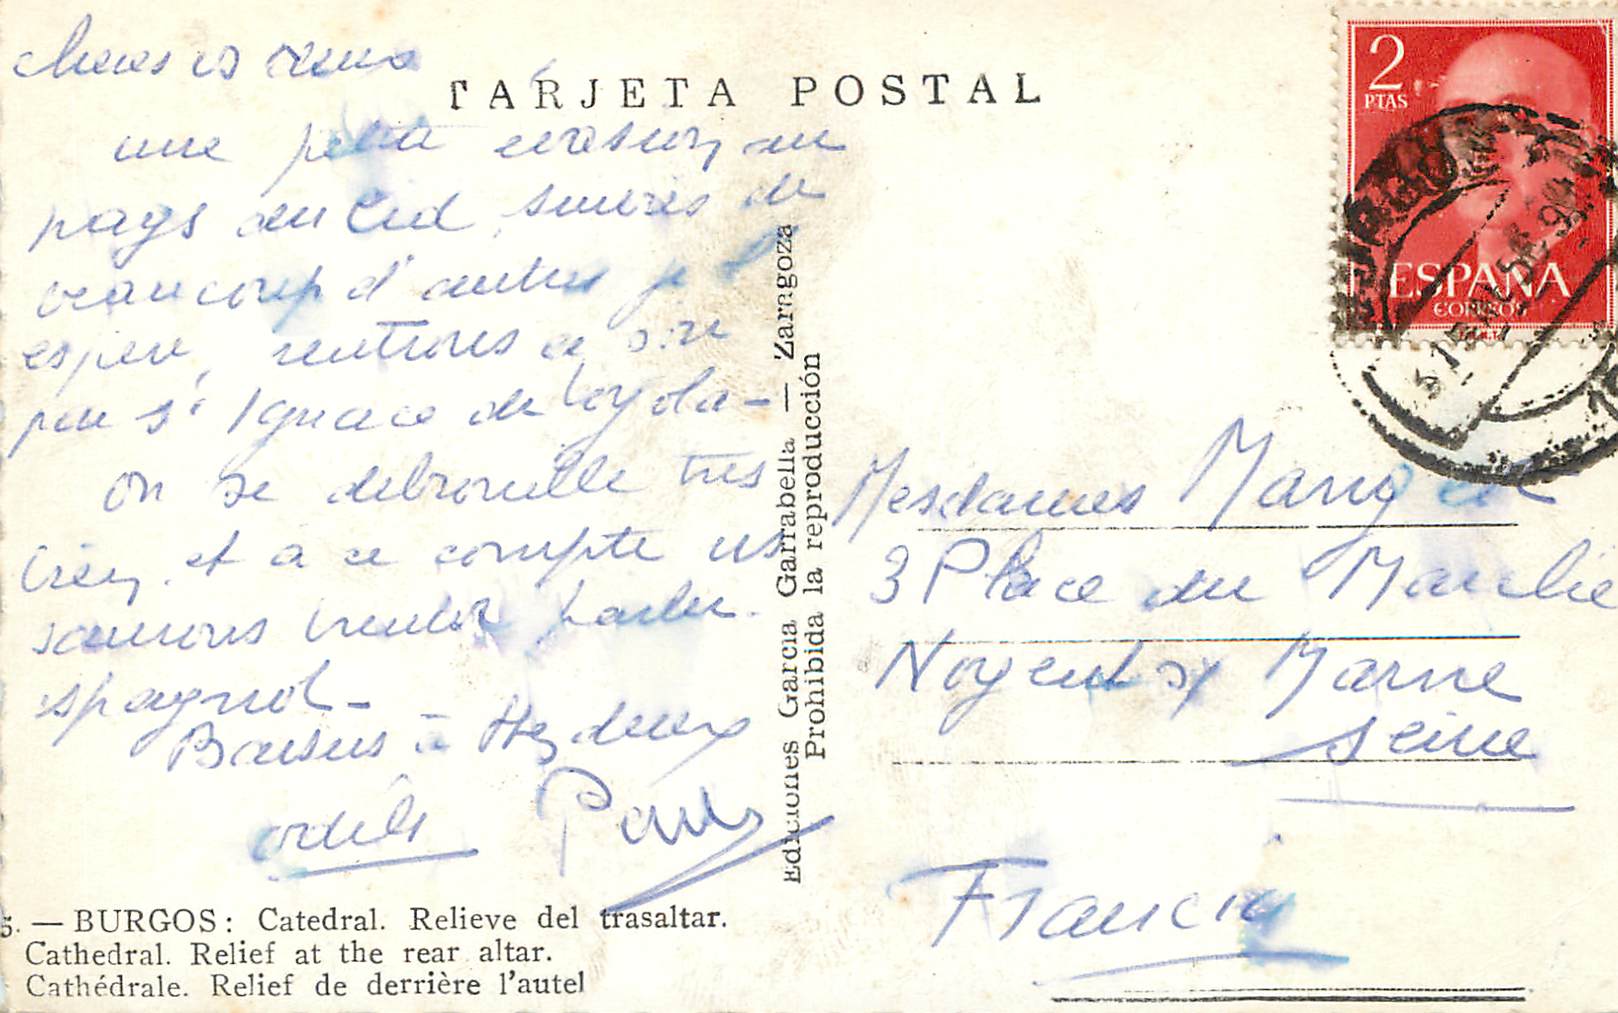 TARJETA POSTAL
une petite evasion au
pays du Cid, suivies de
beaucoup d'autres je l
espere, rentrons ce soir
par St Ignace de Loyola -
on se debrouille tres
bien, et a ce compte
saurons bientot parler
espagnol -
Baisers à deux
Paul
5. — BURGOS: Catedral. Relieve del trasaltar.
Cathedral. Relief at the rear altar.
Cathédrale. Relief de derrière l'autel
Ediciones García Garrabella — Zaragoza
Prohibida la reproducción
2
PTAS
ESPAÑA
CORREOS
Mesdames
3 Place du Marché
Nogent s/ Marne
Seine
Francia